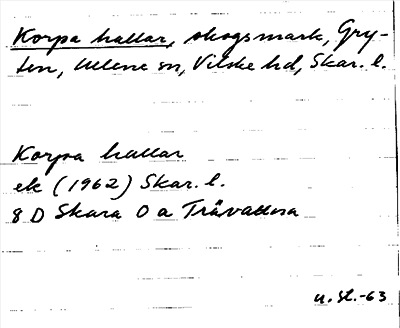 Korpa hallar, skogsmark, Gry-
ten, Ullene sn, Vilske hd, Skar. l.
Korpa hallar
ek (1962) Skar. l.
8 D Skara 0 a Trävattna
u. St.-63